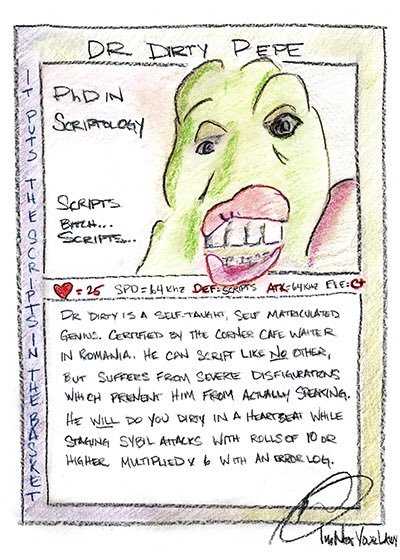 DR DIRTY PEPE
IT PUTS THE SCRIPTS IN THE BASKET
PhD IN
SCRIPTOLOGY
SCRIPTS
BITCH...
SCRIPTS...
= 25 SPD = 64 KHZ DEF: SCRIPTS ATK: 64 KHZ ELE: C+
DR DIRTY IS A SELF-TAUGHT, SELF MATRICULATED
GENIUS. CERTIFIED BY THE CORNER CAFE WAITER
IN ROMANIA. HE CAN SCRIPT LIKE NO OTHER,
BUT SUFFERS FROM SEVERE DISFIGURATIONS
WHICH PREVENT HIM FROM ACTUALLY SPEAKING.
HE WILL DO YOU DIRTY IN A HEARTBEAT WHILE
STAGING SYBIL ATTACKS WITH ROLLS OF 10 OR
HIGHER MULTIPLIED X 6 WITH AN ERROR LOG.